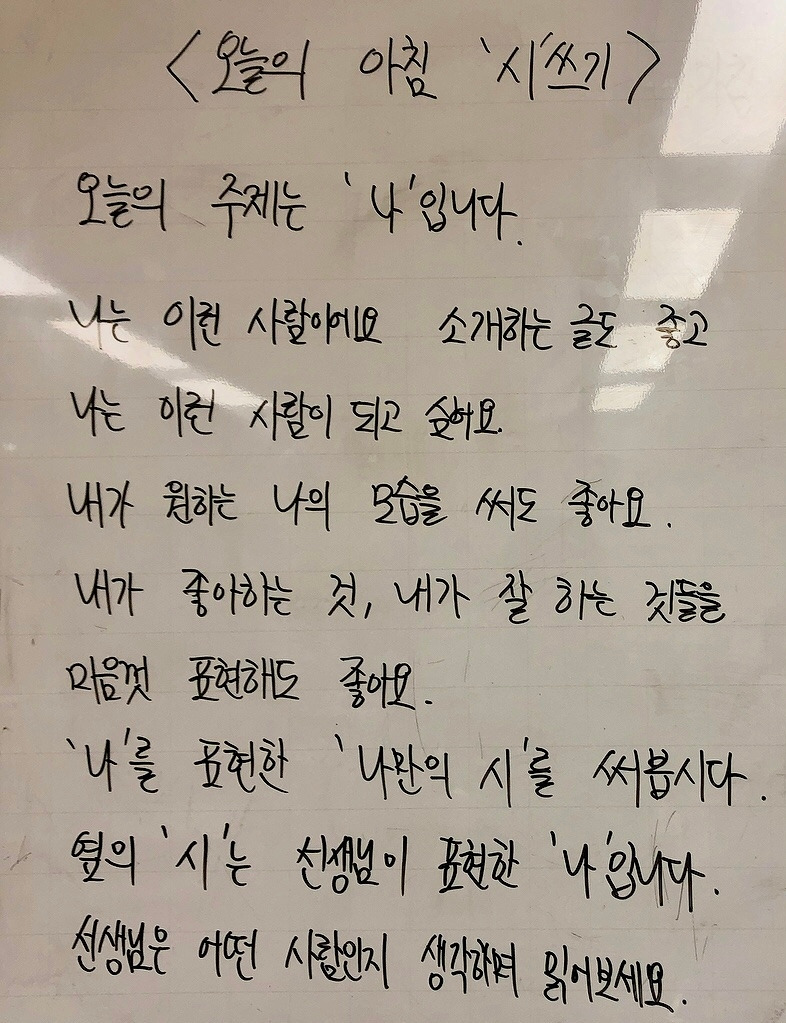 <오늘의 아침 '시'쓰기>
오늘의 주제는 '나'입니다.
나는 이런 사람이에요 소개하는 글도 좋고
나는 이런 사람이 되고 싶어요.
내가 원하는 나의 모습을 써도 좋아요.
내가 좋아하는 것, 내가 잘 하는 것들을
마음껏 표현해도 좋아요.
'나'를 표현한 '나만의 시'를 써봅시다.
옆의 '시'는 선생님이 표현한 '나'입니다.
선생님은 어떤 사람인지 생각하며 읽어보세요.